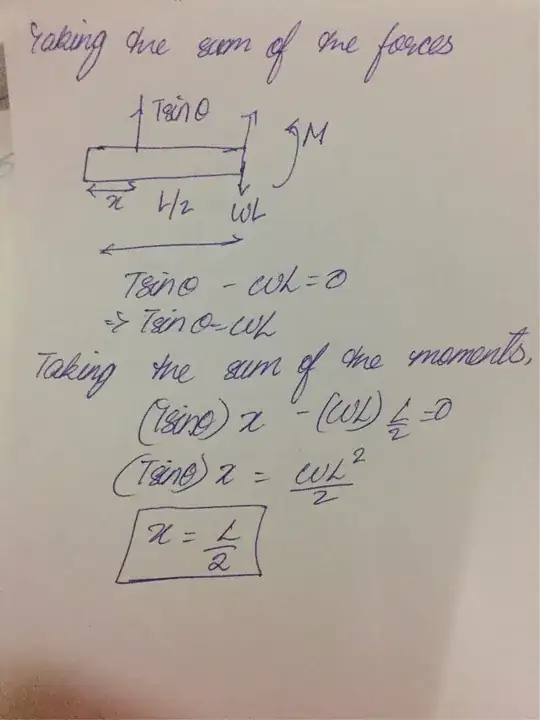 Taking the sum of the forces
Tsinθ
M
x L/2 WL
Tsinθ - WL = 0
=> Tsinθ = WL
Taking the sum of the moments,
(Tsinθ) x - (WL) L/2 = 0
(Tsinθ) x = WL²/2
x = L/2